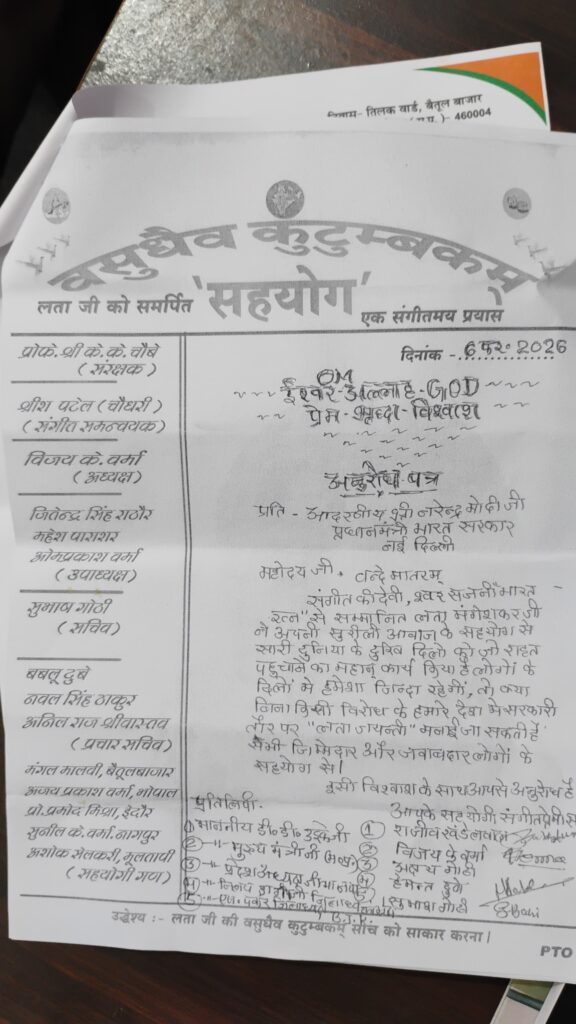 निवास- तिलक वार्ड, बैतूल बाजार
460004
वसुधैव कुटुम्बकम्
लता जी को समर्पित 'सहयोग' एक संगीतमय प्रयास
प्रोफे. श्री के. के. चौबे
( संरक्षक )
श्रीश पटेल ( चौधरी )
( संगीत समन्वयक )
विजय के. वर्मा
( अध्यक्ष )
जितेन्द्र सिंह राठौर
महेश पाराशर
ओमप्रकाश वर्मा
( उपाध्यक्ष )
सुभाष गोठी
( सचिव )
बबलू दुबे
नवल सिंह ठाकुर
अनिल राज श्रीवास्तव
( प्रचार सचिव )
मंगल मालवी, बैतूलबाजार
अजय प्रकाश वर्मा, भोपाल
प्रो. प्रमोद मिश्रा, इंदौर
सुनील के. वर्मा, नागपुर
अशोक सेलकरी, मुलतापी
( सहयोगी गण )
दिनांक - 6 फर॰ 2026
OM
ईश्वर-अल्लाह-GOD
प्रेम-श्रृध्दा-विश्वाश
अनुरोध पत्र
प्रति - आदरनीय श्री नरेन्द्र मोदी जी
प्रधानमंत्री भारत सरकार
नई दिल्ली
महोदय जी, वन्दे मातरम्
संगीत की देवी, श्वर सजनी भारत -
रत्न" से सम्मानित लता मंगेशकर जी
ने अपनी सुरीली आवाज के सहयोग से
सारी दुनिया के दुखि दिलो को जो राहत
पहुचाने का महान् कार्य किया है लोगों के
दिलों मे हमेशा जिन्दा रहेगीं, तो क्या
बिना किसी विरोध के हमारे देश मे सरकारी
तौर पर "लता जयन्ती" मनाई जा सकती है
सभी जिम्मेदार और जवाबदार लोगों के
सहयोग से।
इसी विश्वाश के साथ आपसे अनुरोध है
आपके सहयोगी संगीतप्रेमी
प्रतिलिपी-
① माननीय डी॰ डी॰ उइके जी
② -"- मुख्य मंत्री जी
③ -"- प्रदेश अध्यक्ष
① राजीव खंडेलवाल
② विजय के वर्मा
③ अक्षय गोठी
④ हेमन्त दुबे
सुभाष गोठी
उद्धेश्य :- लता जी की वसुधैव कुटुम्बकम् सोच को साकार करना।
PTO